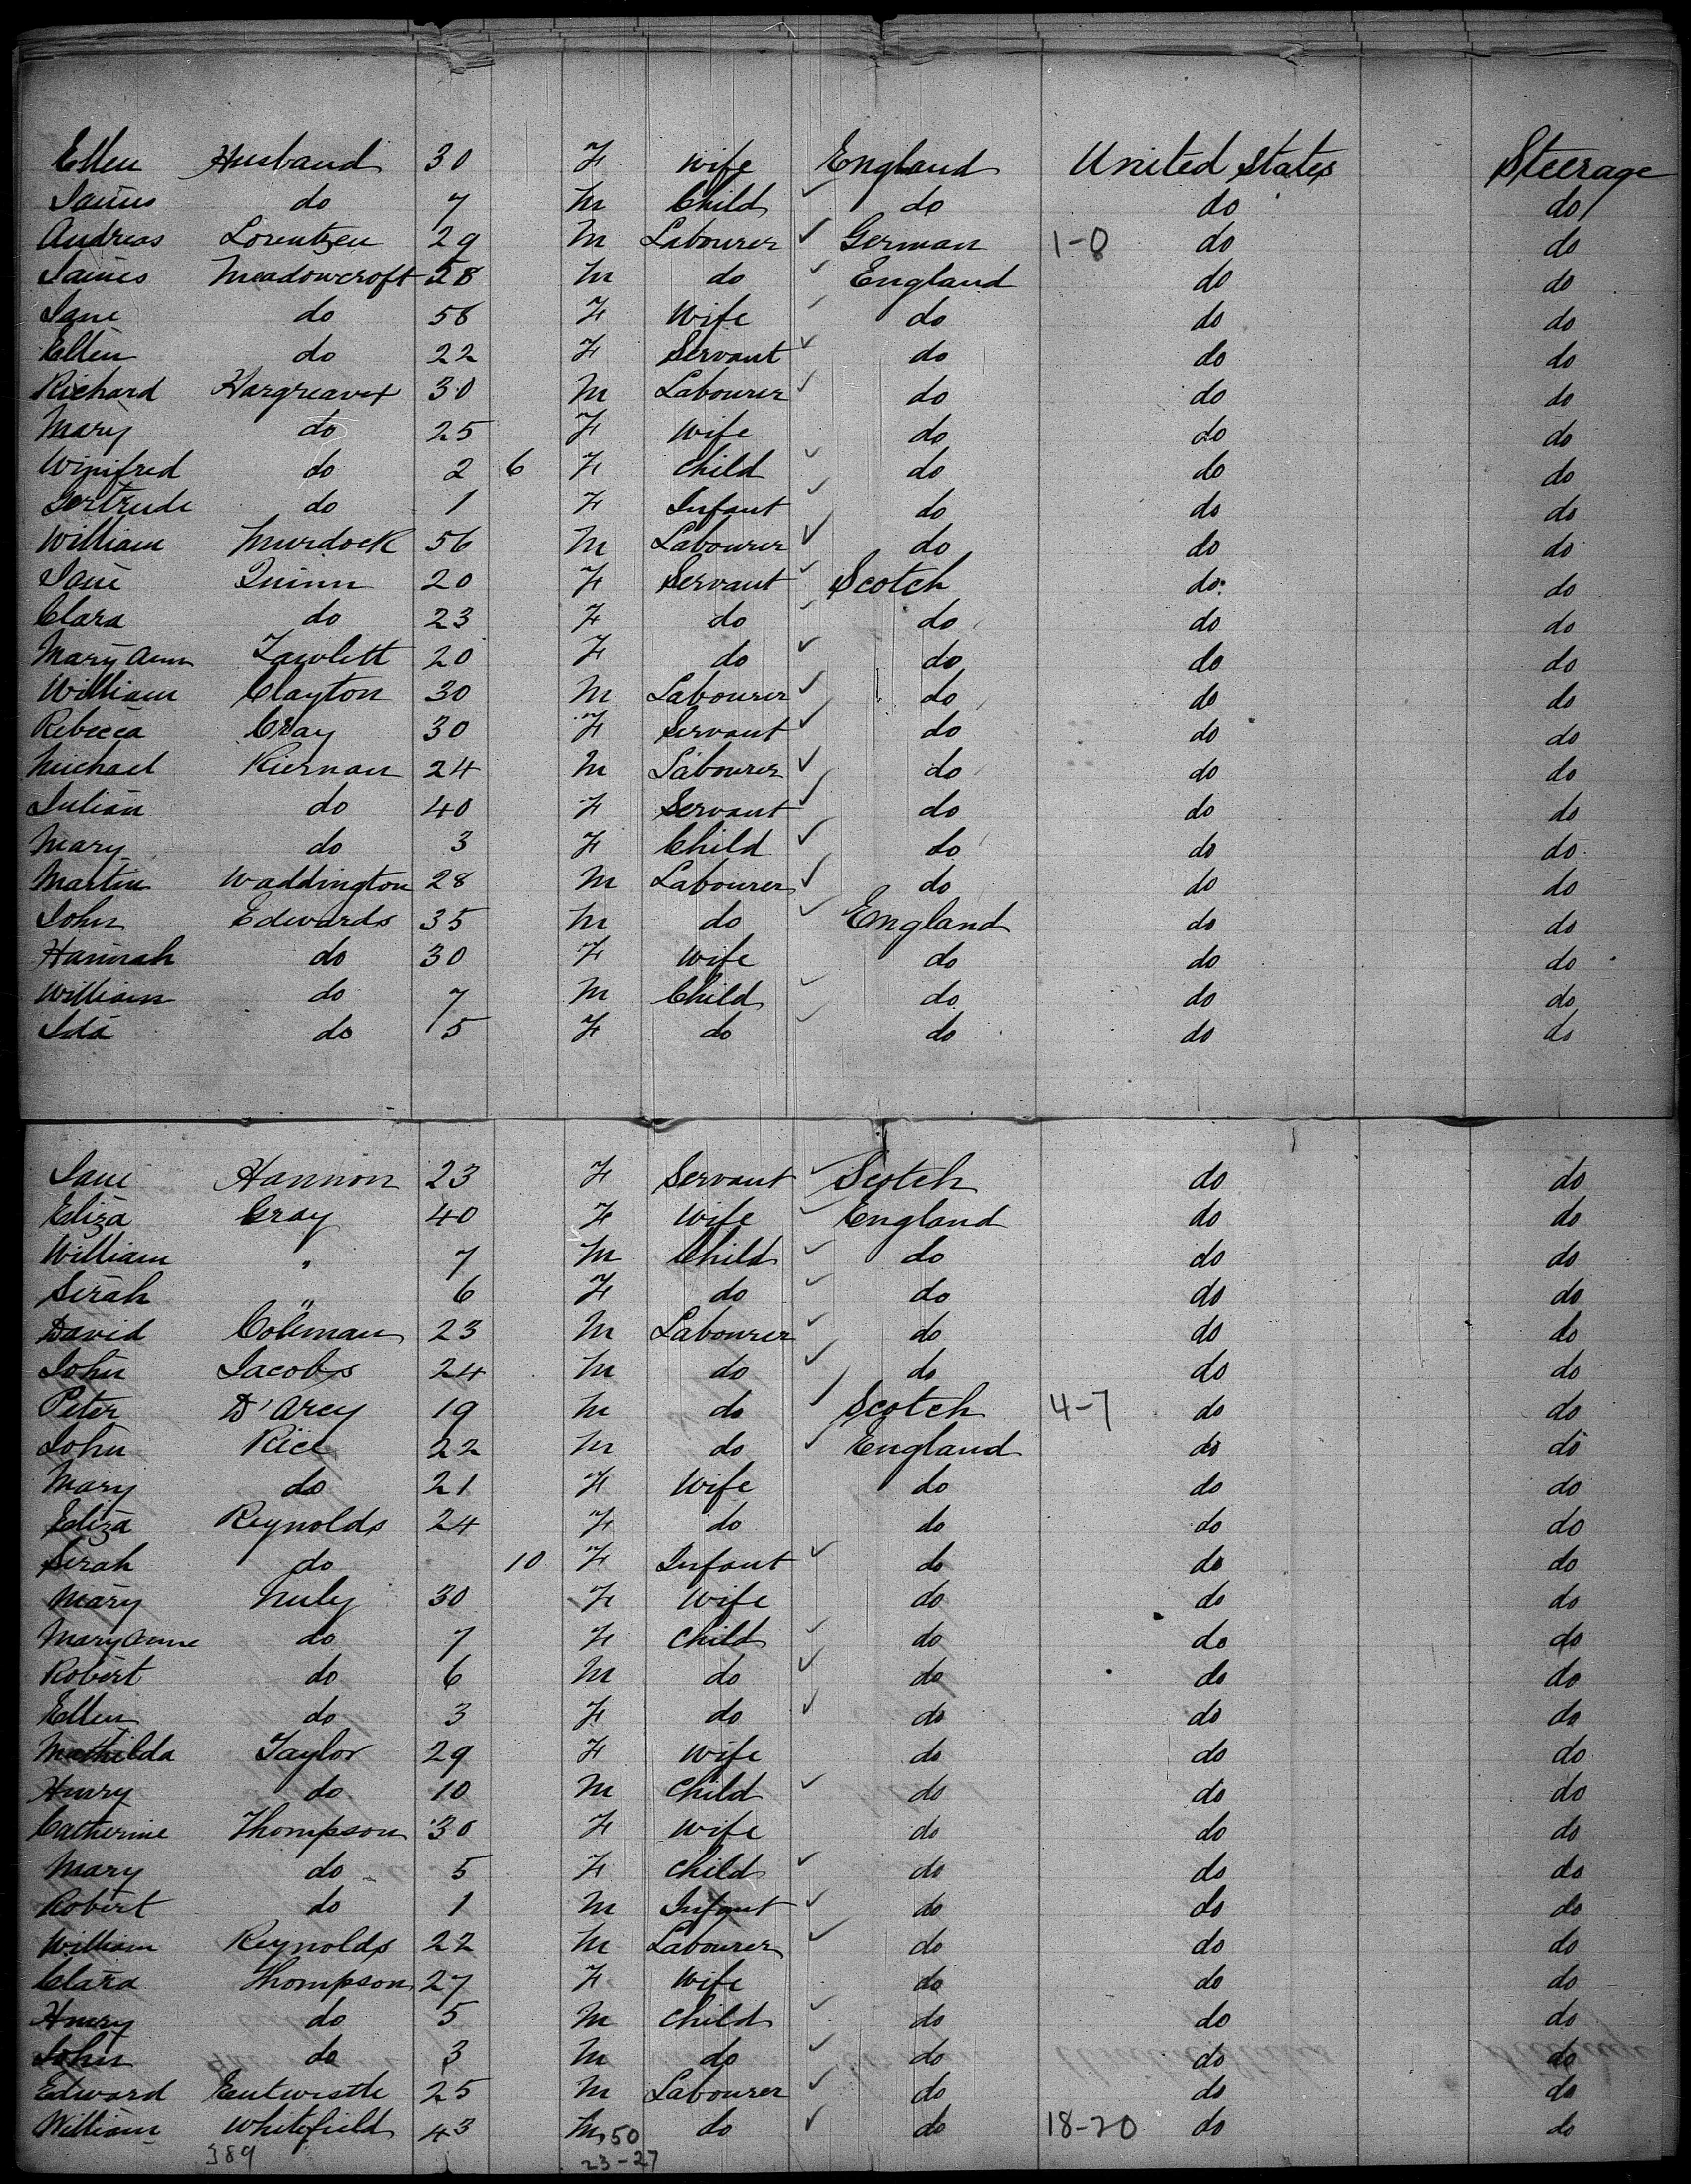 Ellen Husband 30 F Wife England United States Steerage
James do 7 M Child do do do
Andreas Lorentzen 29 M Labourer German 1-0 do do
James Meadowcroft 58 M do England do do
Jane do 58 F Wife do do do
Ellen do 22 F Servant do do do
Richard Hargreaves 30 M Labourer do do do
Mary do 25 F Wife do do do
Winifred do 2 6 F Child do do do
Gertrude do 1 F Infant do do do
William Murdock 56 M Labourer do do do
Jane Quinn 20 F Servant Scotch do do
Clara do 23 F do do do do
Mary Ann 20 F do do do do
William Clayton 30 M Labourer do do do
Rebecca Cray 30 F Servant do do do
Michael Kiernan 24 M Labourer do do do
Julian do 40 F Servant do do do
Mary do 3 F Child do do do
Martin Waddington 28 M Labourer do do do
John Edwards 35 M do England do do
Hannah do 30 F Wife do do do
William do 7 M Child do do do
Ida do 5 F do do do do
Jane Hannon 23 F Servant Scotch do do
Eliza Cray 40 F Wife England do do
William " 7 M Child do do do
Serah " 6 F do do do do
David Coleman 23 M Labourer do do do
John Jacobs 24 M do do do do
Peter D'Arcy 19 M do Scotch 4-7 do do
John Rice 22 M do England do do
Mary do 21 F Wife do do do
Eliza Reynolds 24 F do do do do
Serah do 10 F Infant do do do
Mary Nuly 30 F Wife do do do
Mary Anne do 7 F Child do do do
Robert do 6 M do do do do
Ellen do 3 F do do do do
Mathilda Taylor 29 F Wife do do do
Henry do 10 M Child do do do
Catherine Thompson 30 F Wife do do do
Mary do 5 F Child do do do
Robert do 1 M Infant do do do
William Reynolds 22 M Labourer do do do
Clara Thompson 27 F Wife do do do
Henry do 5 M Child do do do
John do 3 M do do do do
Edward Entwistle 25 M Labourer do do do
William Whitefield 43 M 50 do do 18-20 do do
389 23-27